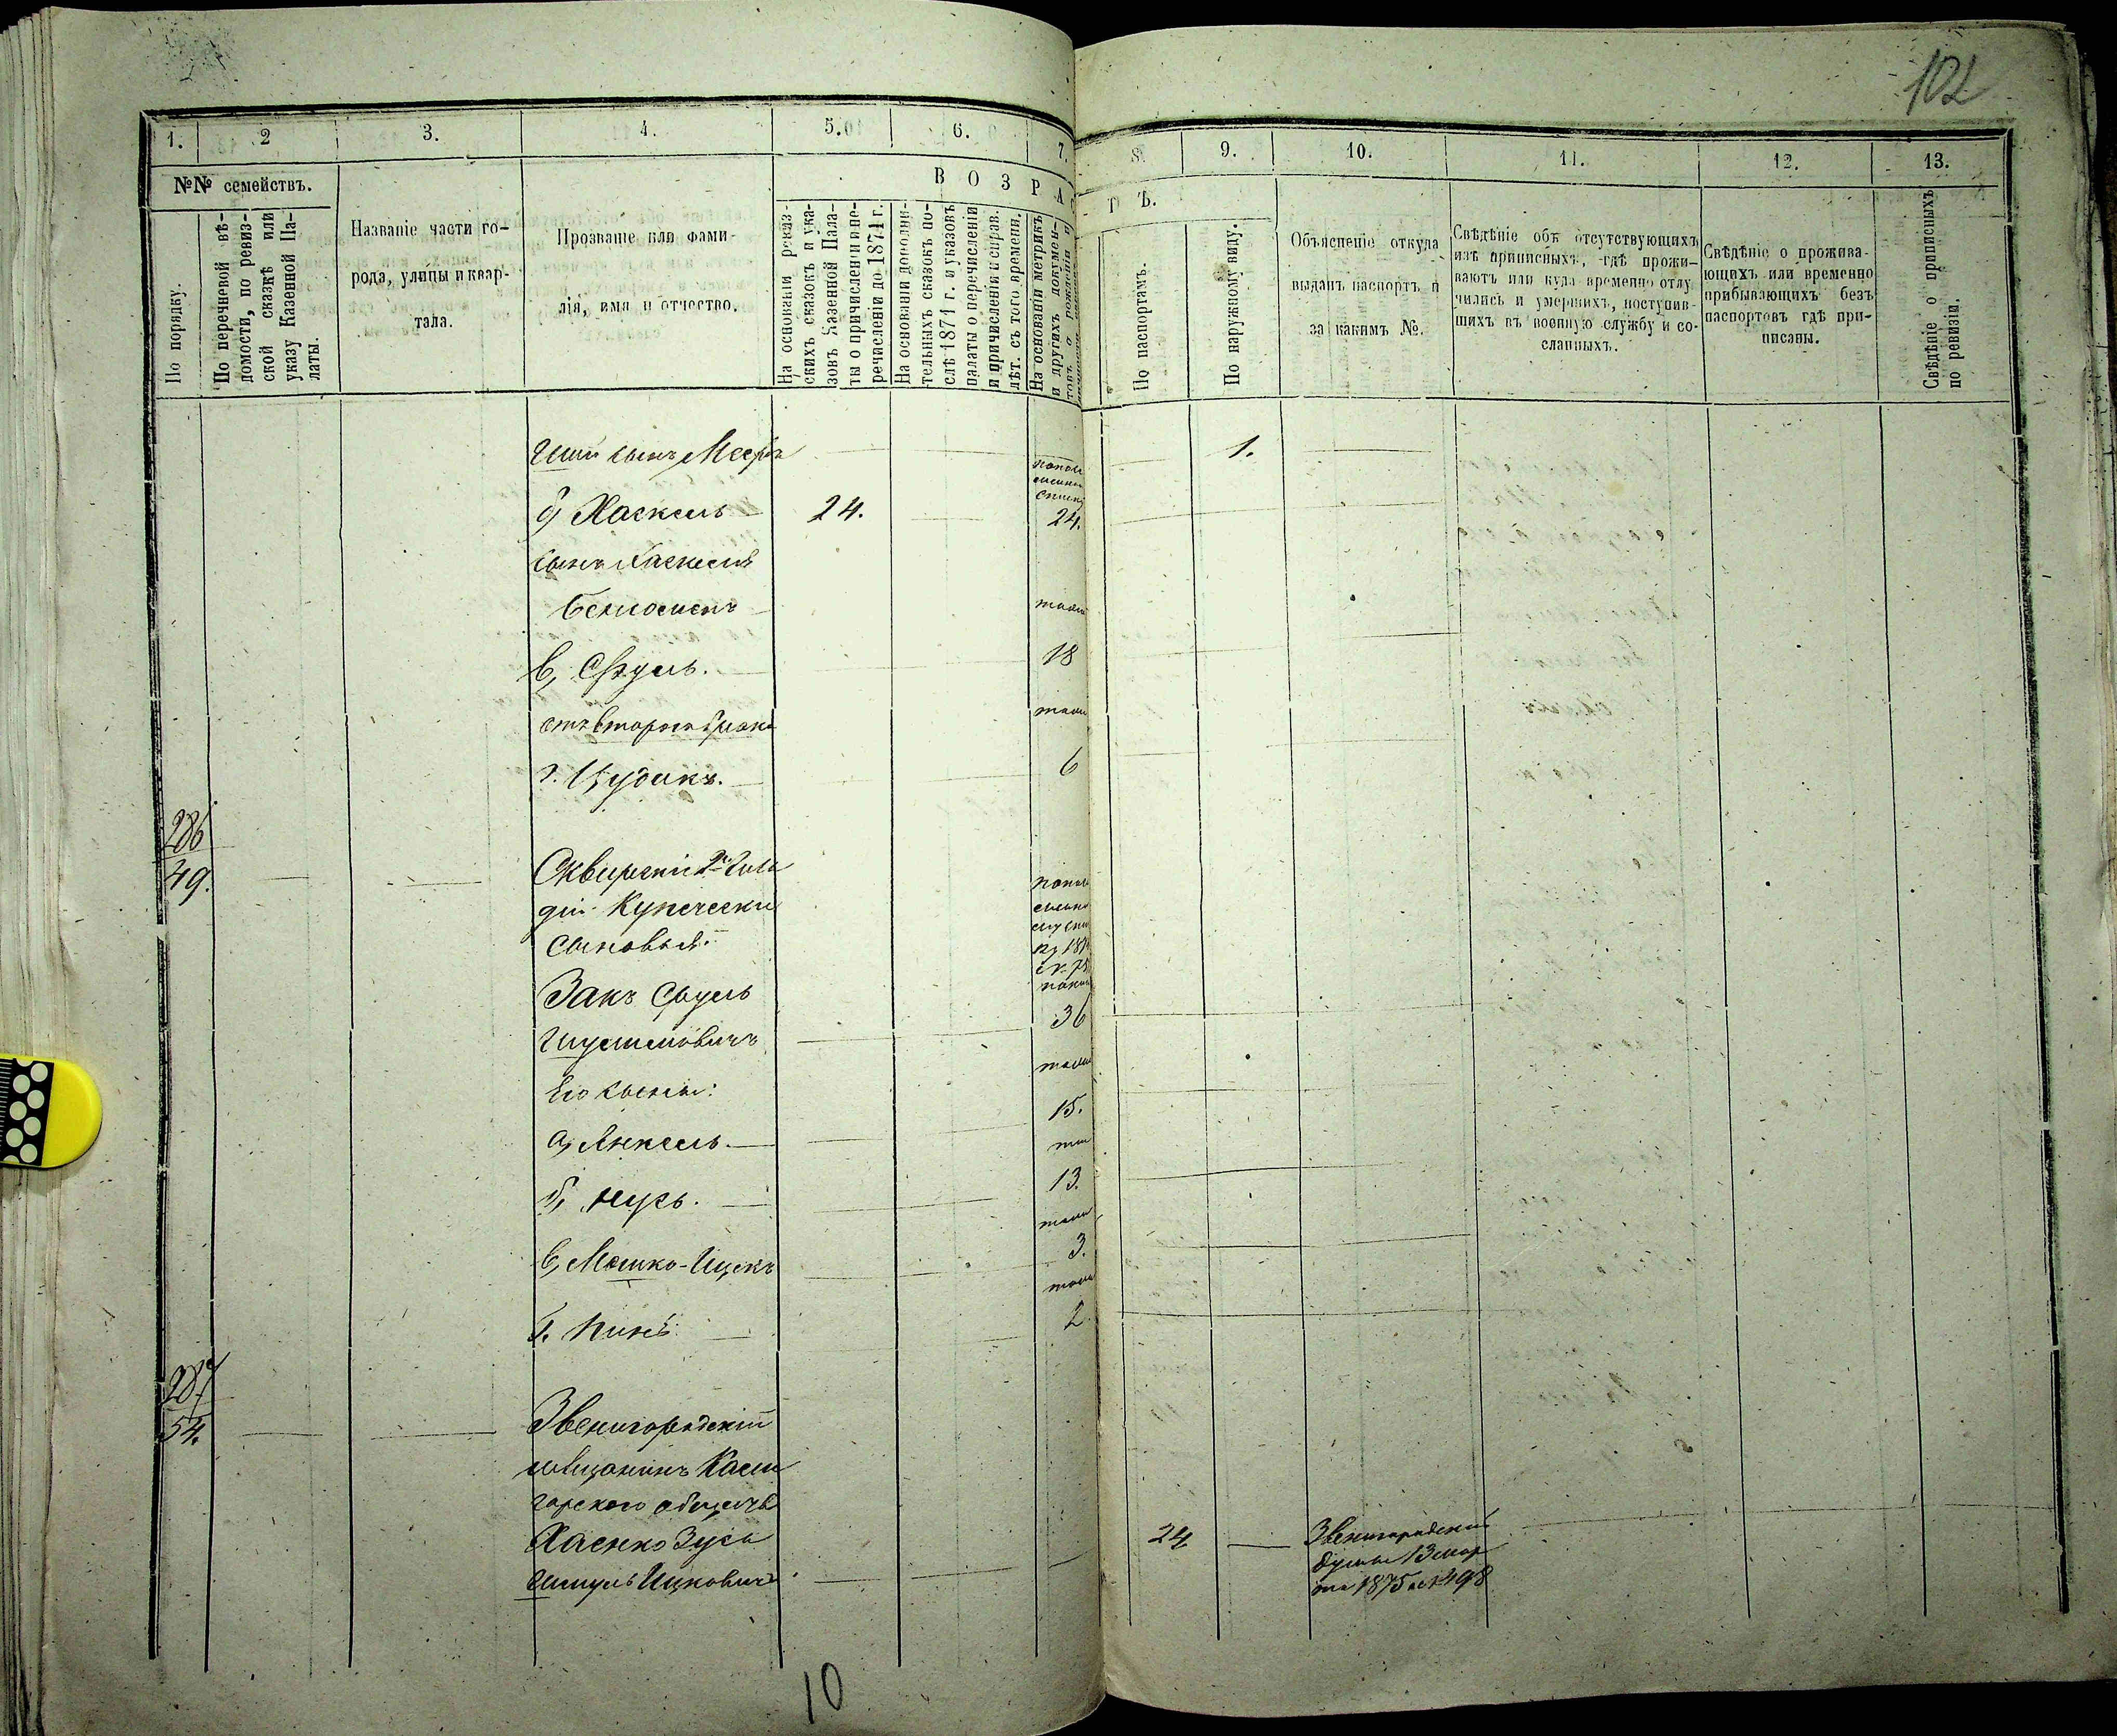 102
1.
2
3.
4.
5.
6.
7.
8.
9.
10.
11.
12.
13.
№№ семействъ.
По порядку.
По перечневой вѣ-
домости, по ревиз-
ской сказкѣ или
указу Казенной Па-
латы.
Названіе части го-
рода, улицы и квар-
тала.
Прозваніе или фами-
лія, имя и отчество.
ВОЗРАС
ТЪ.
На основаніи ревиз-
скихъ сказокъ и ука-
зовъ Казенной Пала-
ты о причисленіи и пе-
речисленіи до 1871 г.
На основаніи дополни-
тельныхъ сказокъ по-
слѣ 1871 г. и указовъ
палаты о перечисленіи
и причисленіи и справ.
лѣт. съ того времени.
На основаніи метрикъ
и другихъ докумен-
товъ о рожденіи и
По паспортамъ.
По наружному виду.
Объясненіе откуда
выданъ паспортъ и
за какимъ №.
Свѣдѣніе объ отсутствующихъ
изъ приписныхъ, гдѣ прожи-
ваютъ или куда временно отлу
чились и умершихъ, поступив-
шихъ въ военную службу и со-
сланныхъ.
Свѣдѣніе о прожива-
ющихъ или временно
прибывающихъ безъ
паспортовъ гдѣ при-
писаны.
Свѣдѣніе о приписныхъ
по ревизіи.
сынъ Меера
1.
б, Хаскель 24. 24.
сынъ Хаскеля
в, Сруль. 18
отъ втораго брака
г. Цудикъ. 6
286
49.
Сквирскіе 2й Гиль
діи Купеческіе
сыновья:
Закъ Сруль 36
Шулимовичъ
Его сыны:
а, Янкель. 15.
б, Нусь. 13.
в, Мошко-Ицекъ 3.
г. Пинь. 2
287
54.
Звенигородскій
мѣщанинъ Касно
горского общества
Хаенко Зусь
Шмуль Ицковичъ
24
Звенигородской
думы 13 мар
та 1875 № 498
10